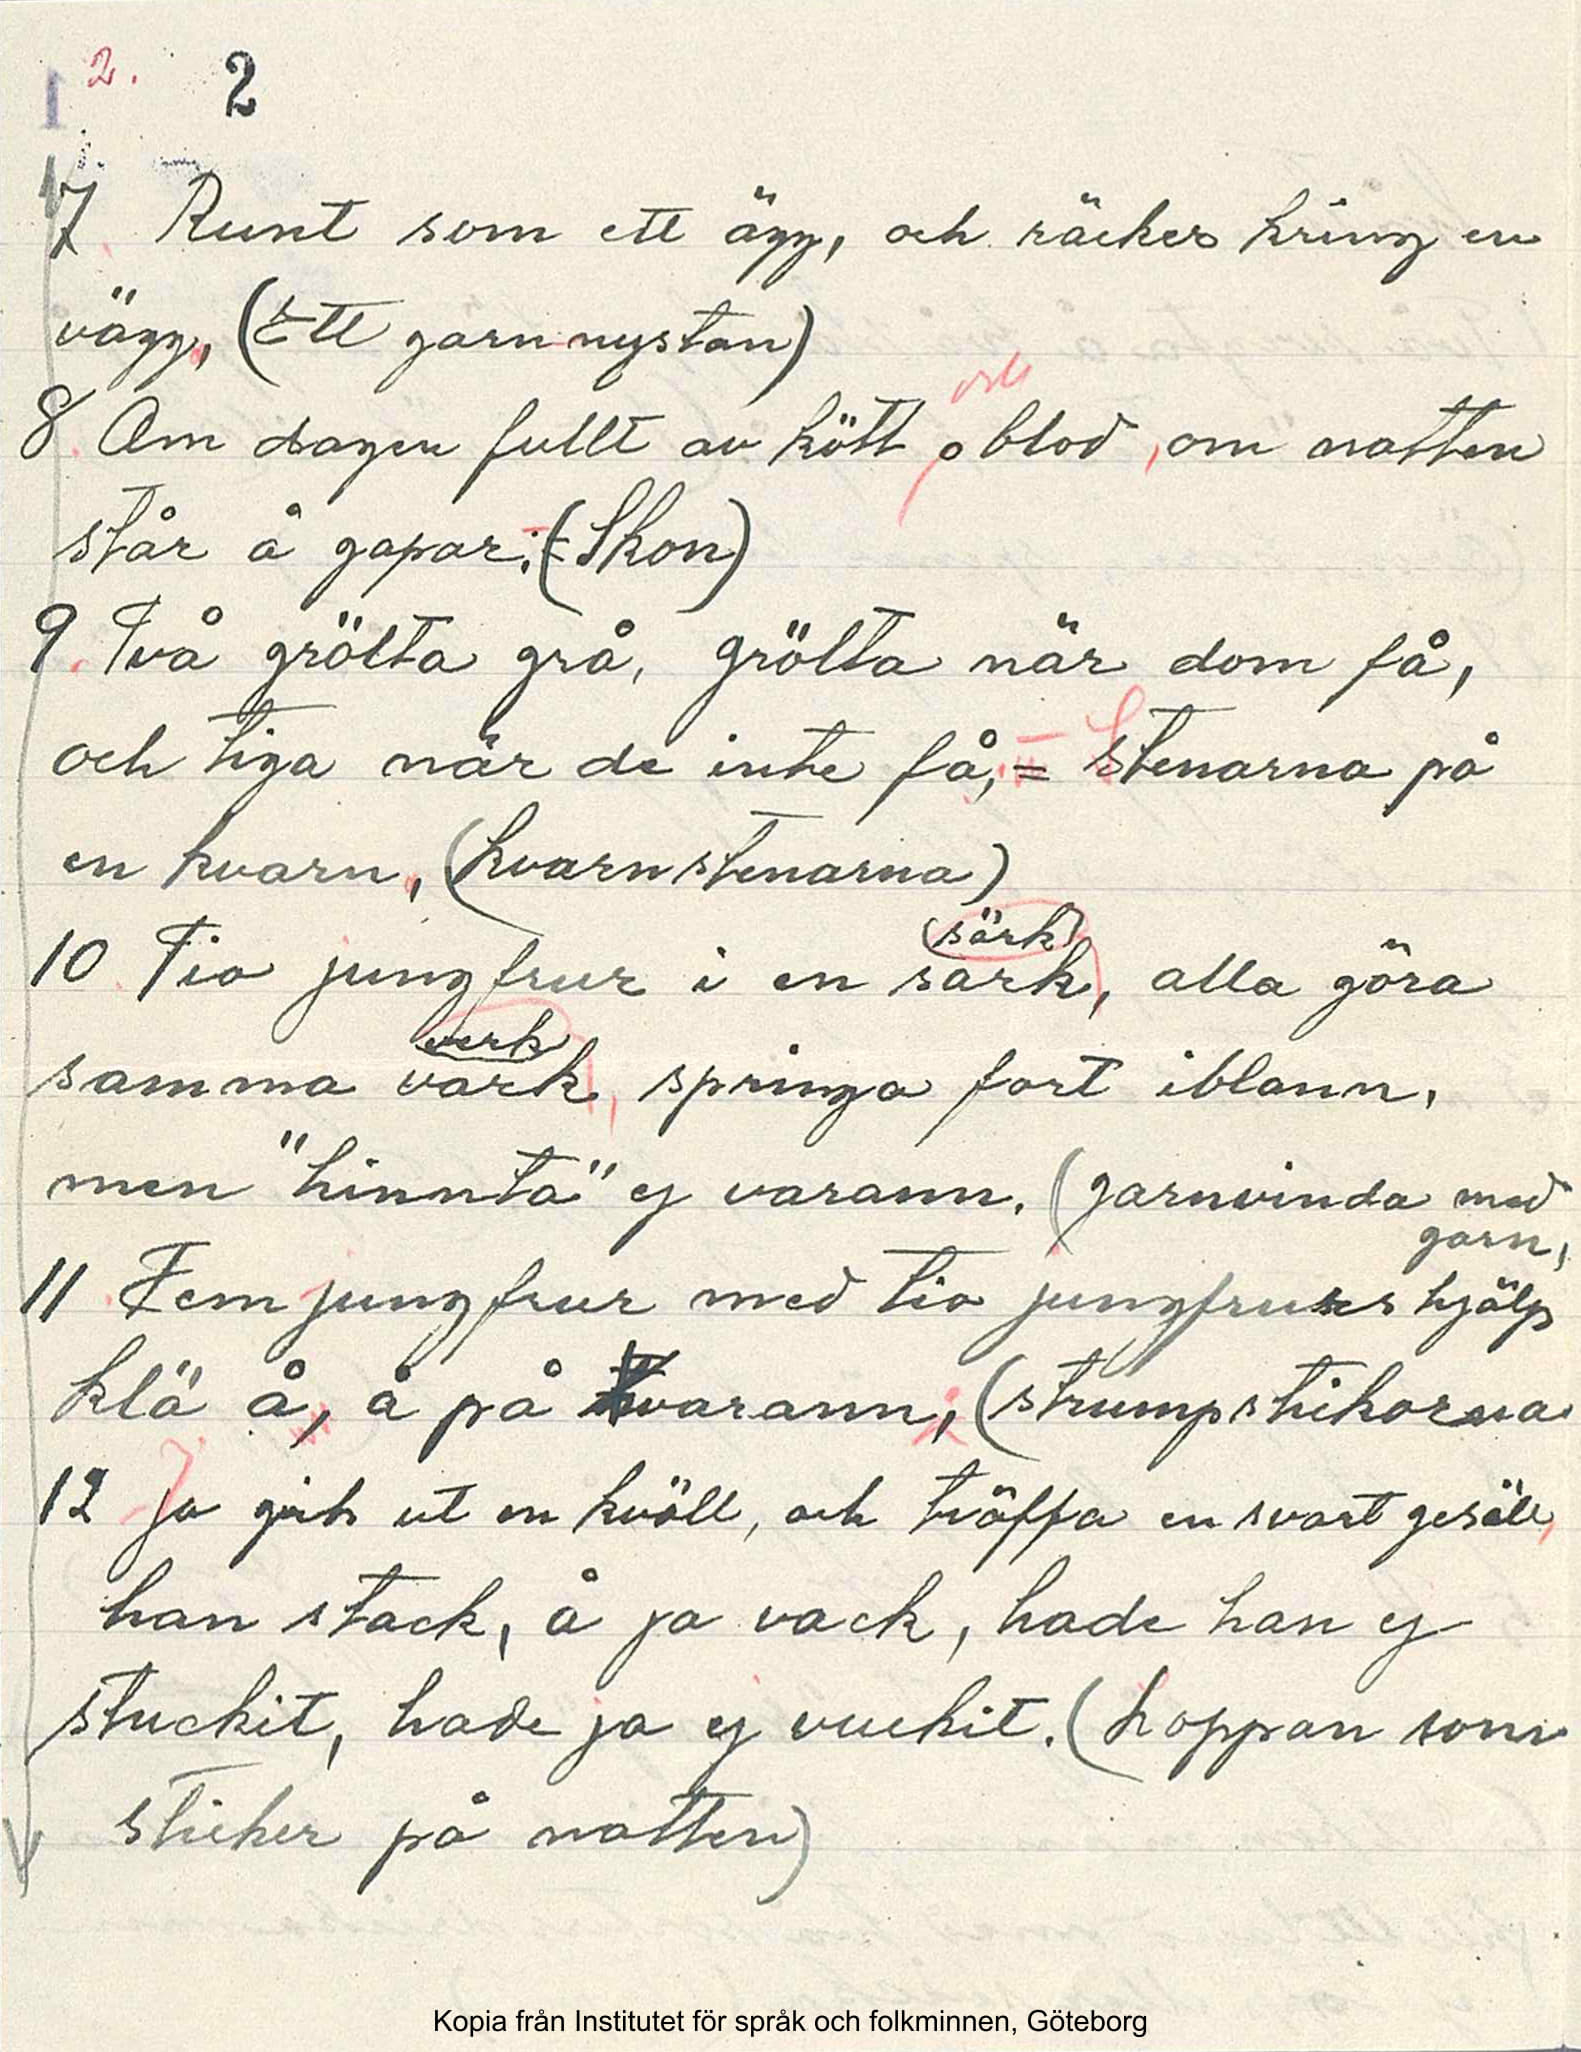 1 2. 2
7 Runt som ett ägg, och räcker kring en
vägg, (Ett garnnystan)
och
8. Om dagen fullt av kött o blod, om natten
står å gapar. = (Skon)
9. Två grölta grå, grölta när dom få,
och tiga när de inte få, = Stenarna på
en kvarn, (kvarnstenarna)
(särk)
10 Tio jungfrur i en sark, alla göra
verk
samma vark, springa fort iblann,
men "hinnta" ej varann. (garnvinda med
garn,
11 Fem jungfrur med tio jungfrurs hjälp
klä å, å på varann, (strumpstikorna
12 ja gick ut en kväll, och träffa en svart gesäll,
han stack, å ja vack, hade han ej
stuckit, hade ja ej vuckit. (Loppan som
sticker på natten)
Kopia från Institutet för språk och folkminnen, Göteborg